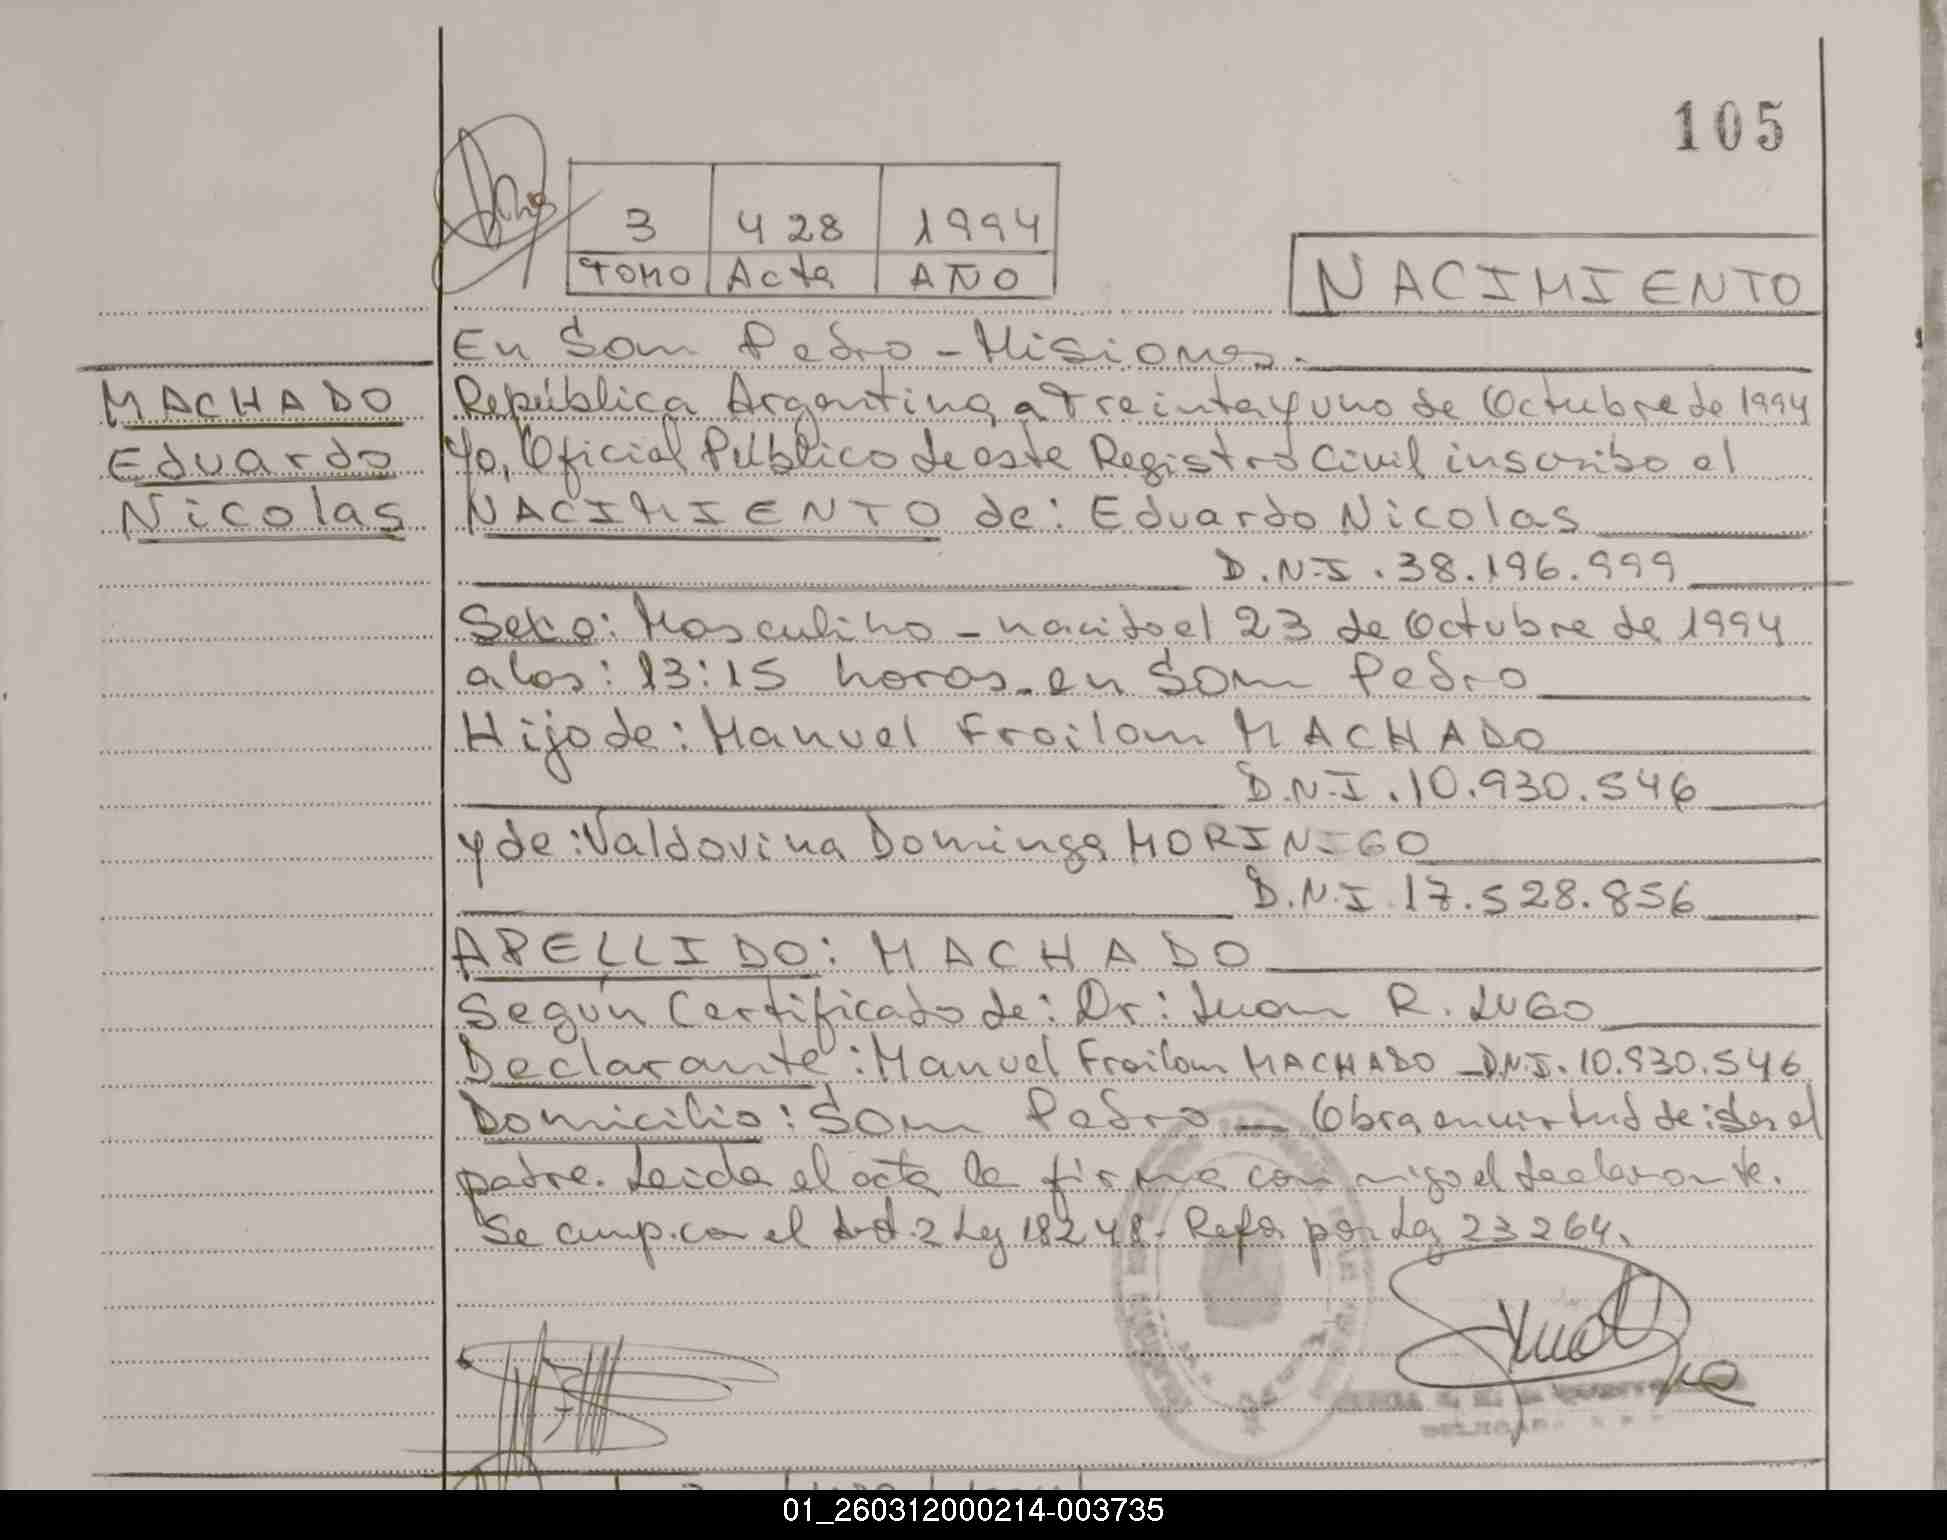 105
3 428 1994
TOMO Acta AÑO
NACIMIENTO
En San Pedro - Misiones.
MACHADO
Eduardo
Nicolas
República Argentina, a Treinta y uno de Octubre de 1994
Yo, Oficial Público de este Registro Civil inscribo el
NACIMIENTO de: Eduardo Nicolas
D.N.I. 38.196.999
Sexo: Masculino - nacido el 23 de Octubre de 1994
a las: 13:15 horas. en San Pedro
Hijo de: Manuel Froilan MACHADO
D.N.I. 10.930.546
y de: Valdovina Dominga MORINIGO
D.N.I. 17.528.856
APELLIDO: MACHADO
Según Certificado de: Dr: Juan R. LUGO
Declarante: Manuel Froilan MACHADO - D.N.I. 10.930.546
Domicilio: San Pedro - Obra en virtud de: ser el
padre. Leida el acta la firma conmigo el declarante.
Se cump. con el Art. 2 Ley 18248. Refor por Ley 23264.
01_260312000214-003735